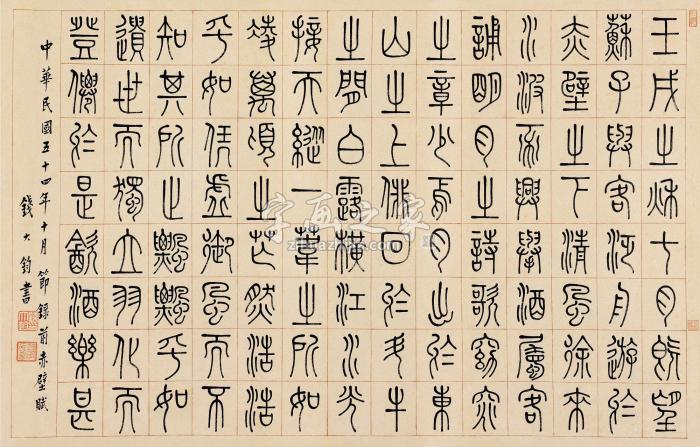 壬戌之秋七月既望
蘇子與客汎舟遊於
赤壁之下清風徐來
水波不興舉酒屬客
誦明月之詩歌窈窕
之章少焉月出於東
山之上徘徊於斗牛
之間白露橫江水光
接天縱一葦之所如
凌萬頃之茫然浩浩
乎如憑虛御風而不
知其所止飄飄乎如
遺世而獨立羽化而
登僊於是飲酒樂甚
中華民國五十四年十月節錄前赤壁賦
錢大鈞書
字画之家